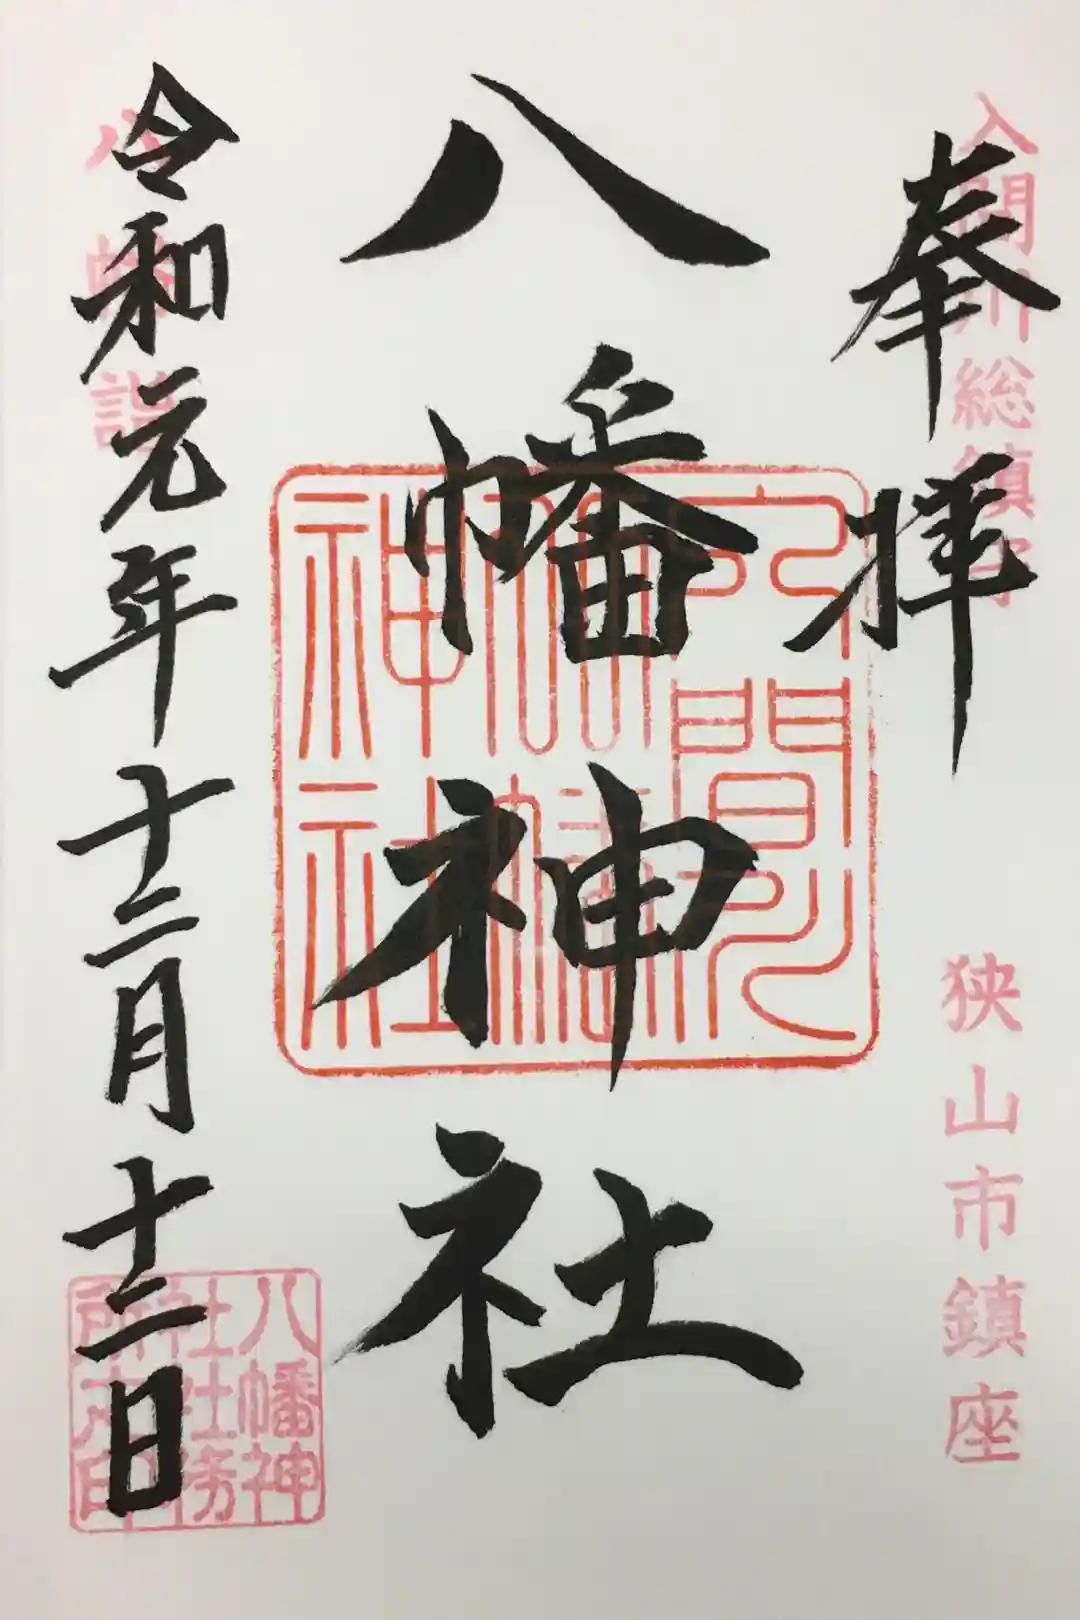 奉拝
入間川総鎮守
狭山市鎮座
八幡神社
八幡神社
令和元年十二月十二日
八幡神
社社務
所之印